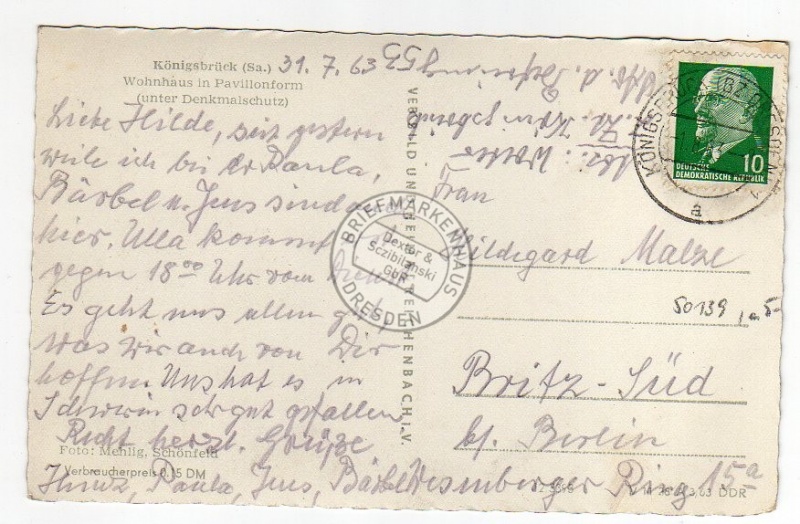 Königsbrück (Sa.)
Wohnhaus in Pavillonform
(unter Denkmalschutz)
31. 7. 63
Liebe Hilde, seit gestern
weile ich bei Paula,
Bärbel u. Jens sind a
hier. Ulla kommt
gegen 18⁰⁰ Uhr vom
Es geht uns allen gut
was wir auch von Dir
hoffen. Uns hat es in
Schwerin sehr gut gefallen
Recht herzl. Grüße
Foto: Mehlig, Schönfeld
Verbraucherpreis 0,15 DM
Paula, Jens, Bärbel
VERBILD UND
CHENBACH i. V.
Frau
Hildegard Malze
Britz-Süd
b/. Berlin
Ring 15a
DDR
50139
KÖNIGSBRÜCK (BZ DRESDEN)
a
10
DEUTSCHE
DEMOKRATISCHE REPUBLIK
BRIEFMARKENHAUS
Dextor &
Sczibilanski
GbR
DRESDEN